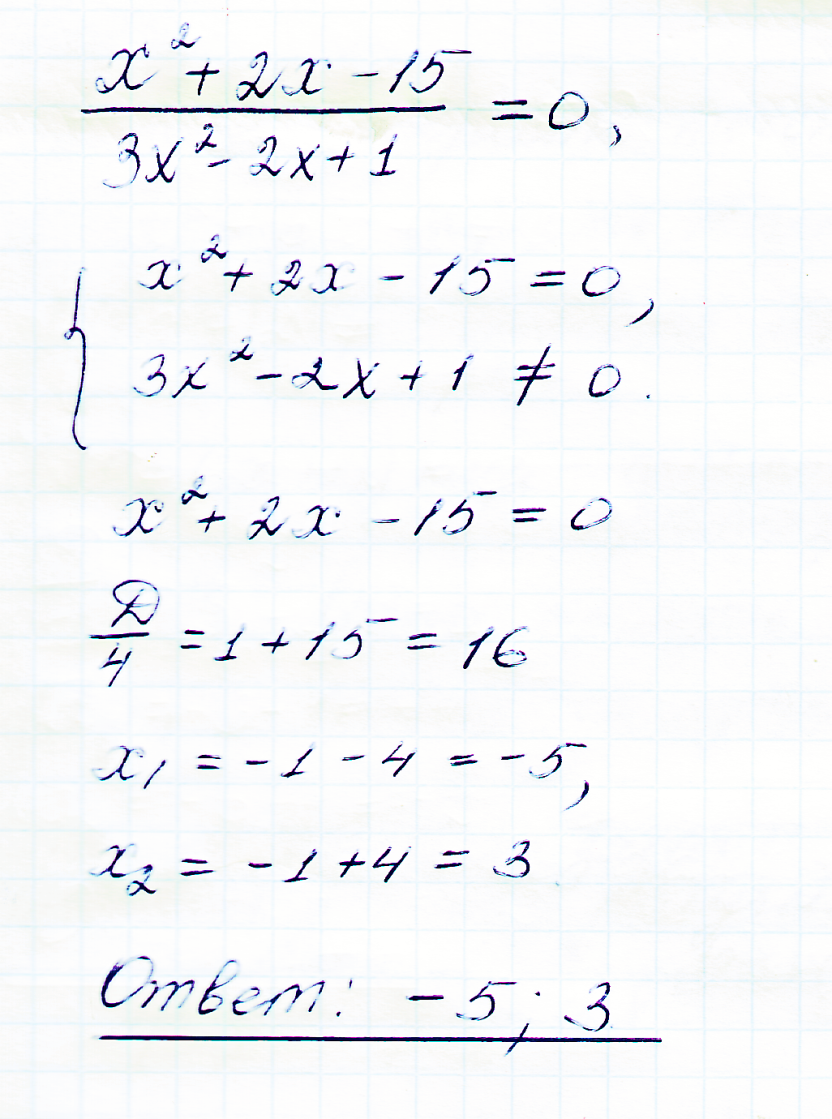 x² + 2x - 15
3x² - 2x + 1
= 0,
{ x² + 2x - 15 = 0,
3x² - 2x + 1 ≠ 0.
x² + 2x - 15 = 0
D/4 = 1 + 15 = 16
x₁ = -1 - 4 = -5,
x₂ = -1 + 4 = 3
Ответ: -5; 3